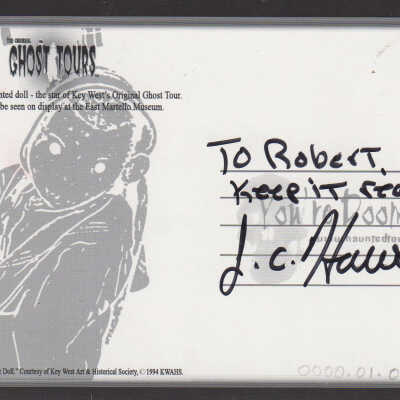 THE ORIGINAL
GHOST TOURS
nted doll - the star of Key West's Original Ghost Tour.
be seen on display at the East Martello Museum.
To Robert,
Keep it
You're Doom
J.C.
Doll." Courtesy of Key West Art & Historical Society, © 1994 KWAHS.
0000.01.0